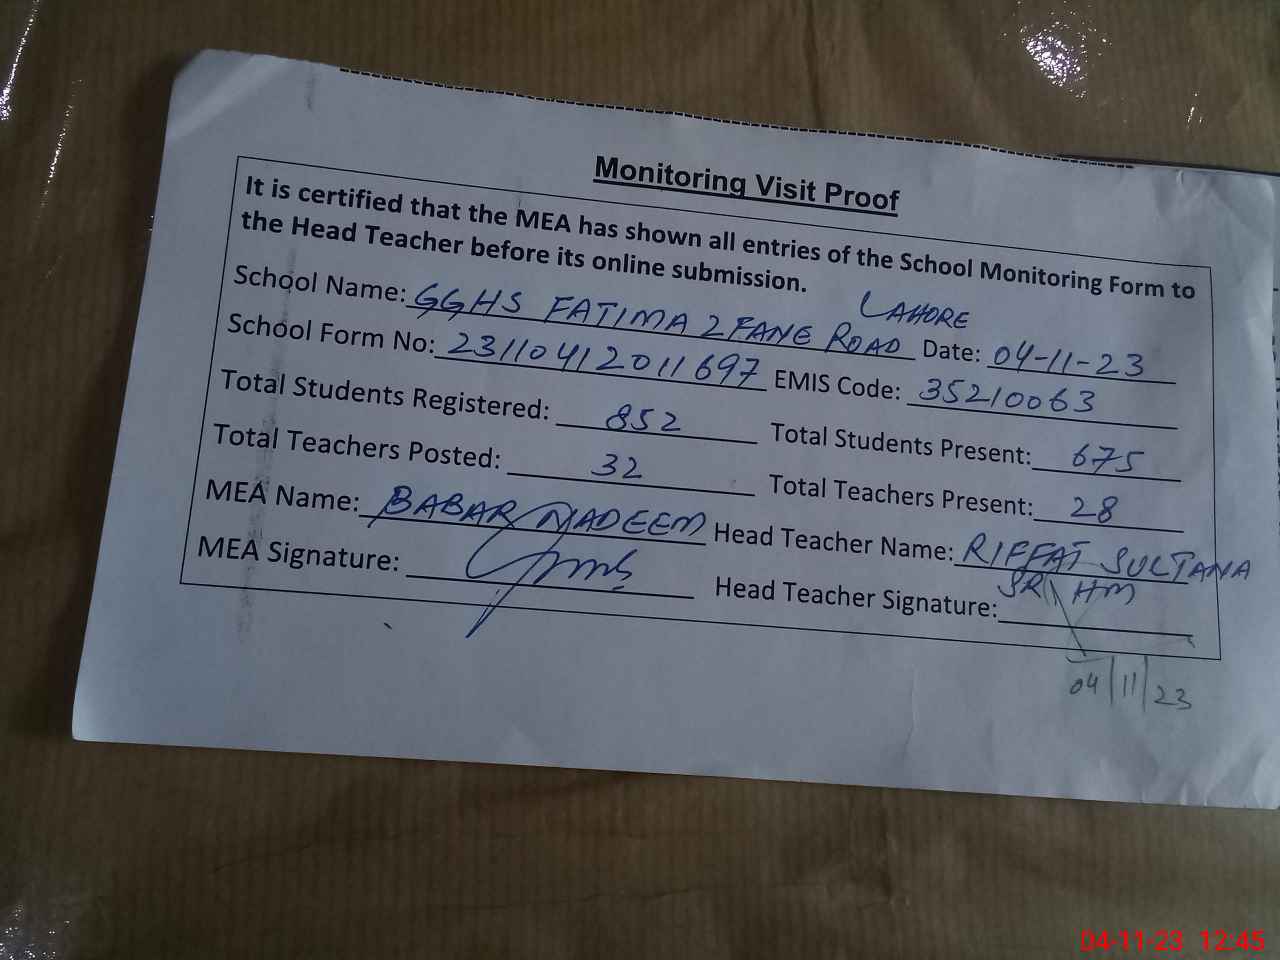 Monitoring Visit Proof
It is certified that the MEA has shown all entries of the School Monitoring Form to
the Head Teacher before its online submission.
LAHORE
School Name: GGHS FATIMA 2 FANE ROAD Date: 04-11-23
School Form No: 23110412011697 EMIS Code: 35210063
Total Students Registered: 852 Total Students Present: 675
Total Teachers Posted: 32 Total Teachers Present: 28
MEA Name: BABAR NADEEM Head Teacher Name: RIFFAT SULTANA
SR HM
MEA Signature: Head Teacher Signature:
04/11/23
04-11-23 12:45